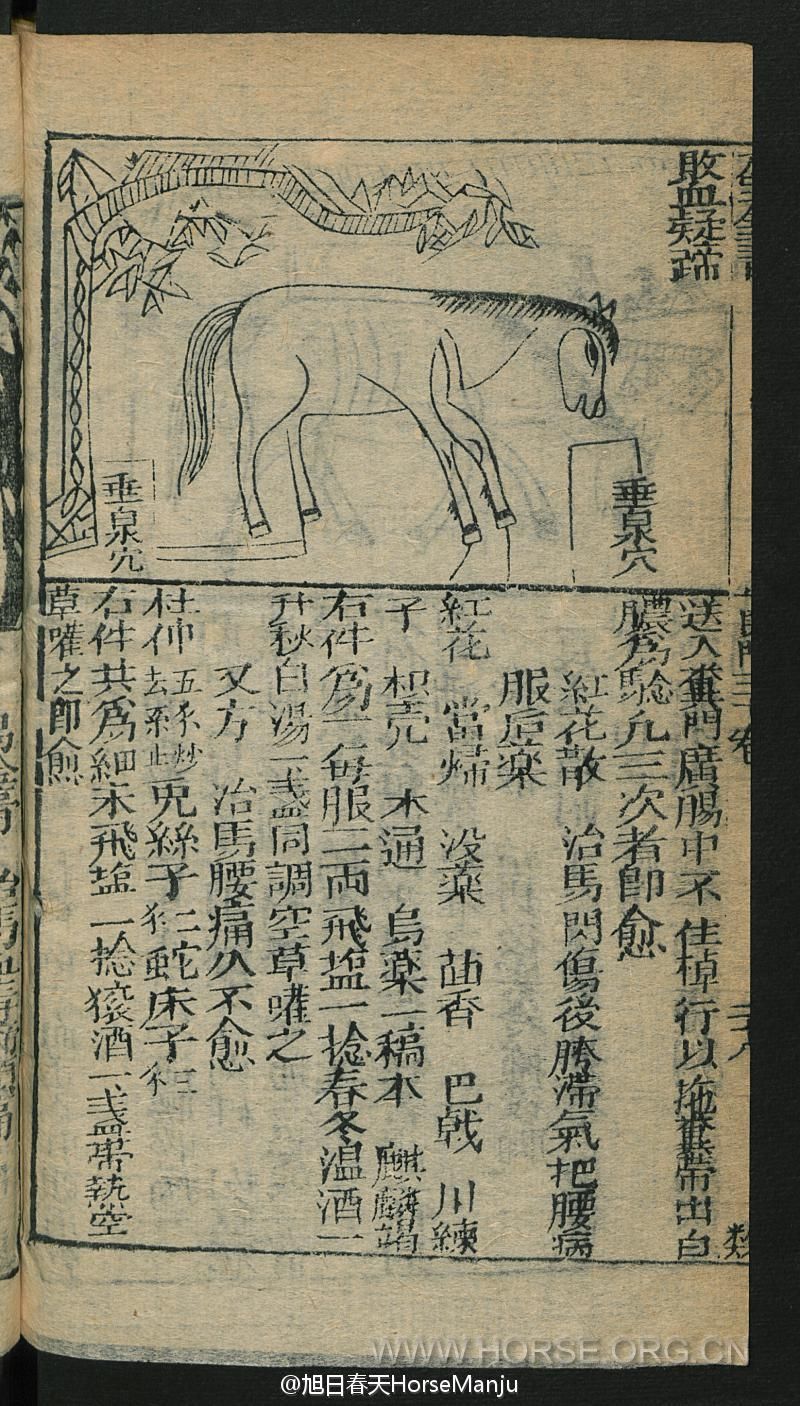 敗血凝蹄
垂泉穴
垂泉穴
送入糞門廣腸中不住棹行以拖糞帶出白
膿為驗凢三次者即愈
紅花散　治馬閃傷後胯滯氣把腰病
服后藥
紅花　當歸　没藥　茴香　巴戟　川練
子　枳壳　木通　烏藥　稿本　麒麟竭
右件為一每服二両飛塩一捻春冬温酒一
升秋白湯一盞同調空草嚾之
又方　治馬腰痛久不愈
杜仲五分炒去糸止兎絲子分二蛇床子分三
右件共為細末飛塩一捻猿酒一盞帶熱空
草嚾之即愈
類
WWW.HORSE.ORG.CN
@旭日春天HorseManju